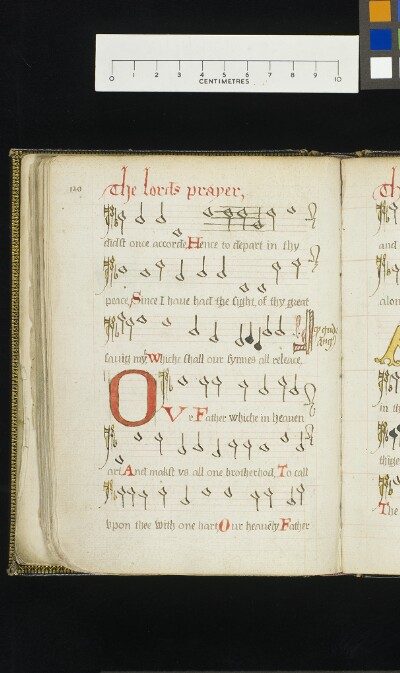 0 1 2 3 4 5 6 7 8 9 10
CENTIMETRES
120
The lords prayer,
The
didst once accorde, Hence to depart in thy
and
peace, Since I haue had the sight, of thy great
alon
sauig my Whiche shall our synnes all release.
OVr Father whiche in heauen
in th
art And makst vs all one brotherhod, To call
thige
vpon thee with one hart Our heauely Father
The